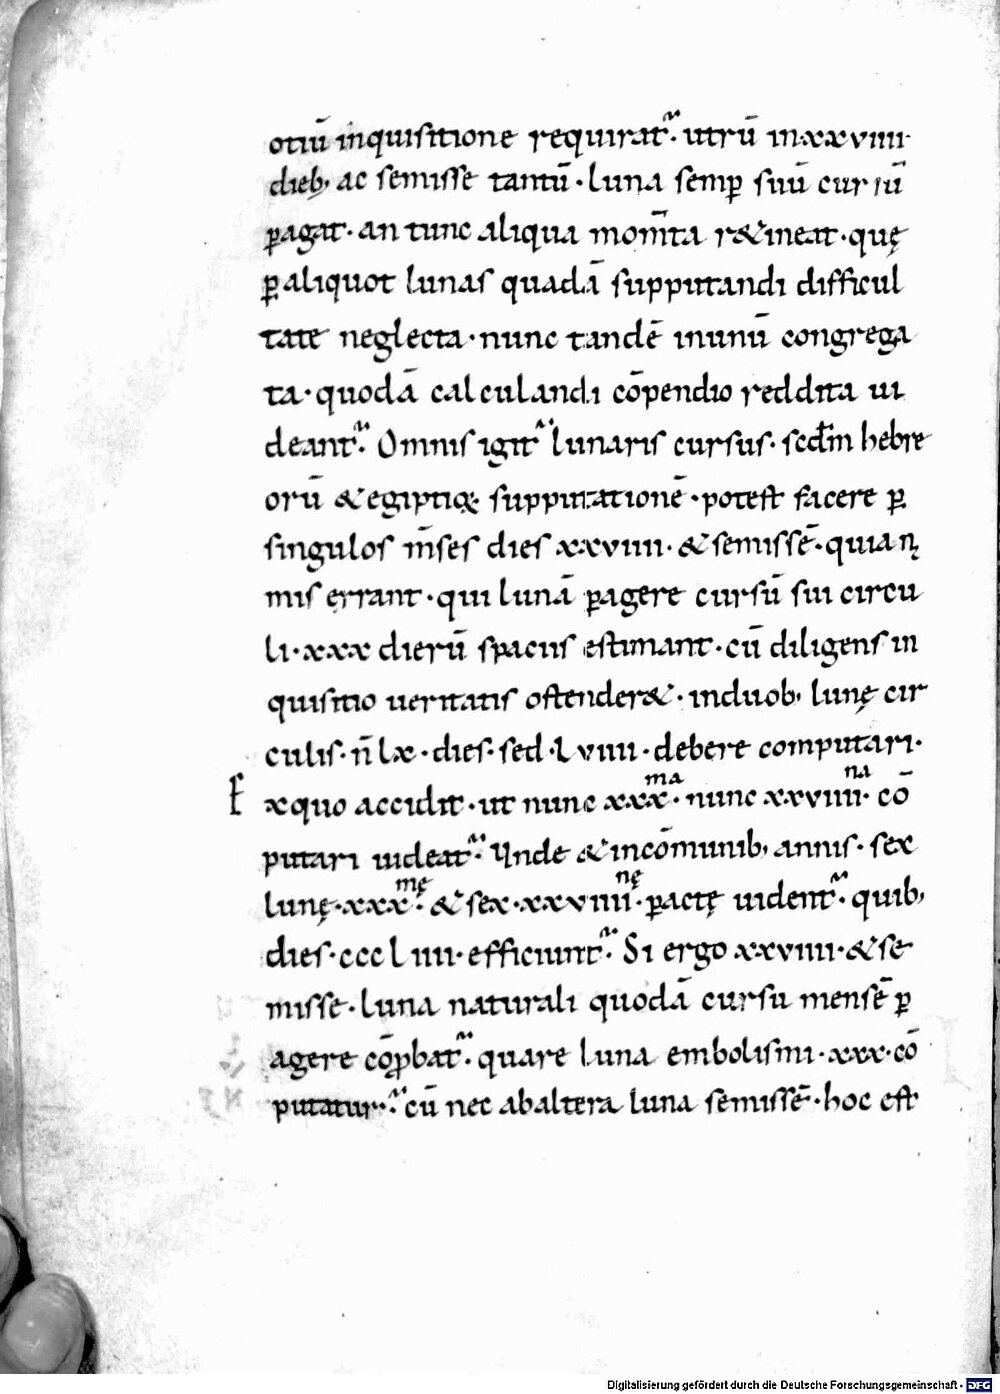 otiū inquisitione requirat᷑· utrū in·xxviiii·
dieb; ac semisse tantū· luna semꝑ suū cursū
ꝑagat· an tunc aliqua mom̄ta r&ineat· quę
ꝑ aliquot lunas quadā supputandi difficul
tate neglecta· nunc tandē inunū congrega
ta· quodā calculandi cōpendio reddita ui
deant᷑· Omnis igit᷑ lunaris cursus· scd̄m hebre
orū & egiptioꝝ supputationē· potest facere ꝑ
singulos m̄ses dies xxviiii· & semissē· quia n
mis errant· qui lunā ꝑagere cursū sui circu
li· xxx dierū spaciis estimant· cū diligens in
quisitio ueritatis ostender&· induob; lunę cir
culis· n̄ lx· dies· sed· lviiii· debere computari·
Exquo accidit· ut nunc xxxᵐᵃ· nunc xxviiiiⁿᵃ· cō
putari uideat᷑· Ynde & incōmunib; annis· sex
lunę· xxxᵐę· & sex· xxviiiiⁿę· ꝑactę uident᷑· quib;
dies· cccliiii· efficiunt᷑· Si ergo xxviiii· & se
misse· luna naturali quodā cursu mensē ꝑ
agere cōꝓbat᷑· quare luna embolismi· xxx· cō
putatur· cū nec abaltera luna semissē· hoc est
Digitalisierung gefördert durch die Deutsche Forschungsgemeinschaft - DFG